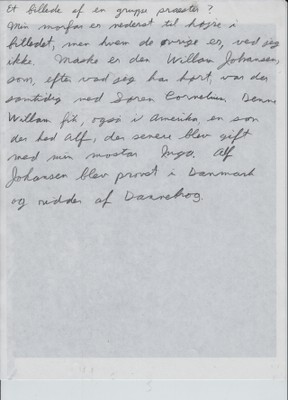 Et billede af en gruppe præster?
Min morfar er nederst til højre i
billedet, men hvem de øvrige er, ved jeg
ikke. Maaske er den William Johansen,
som, efter vad jeg har hørt, var der
samtidig med Søren Cornelius. Denne
William fik, også i Amerika en søn
der hed Alf, der senere blev gift
med min moster Inga. Alf
Johansen blev provst i Danmark
og ridder af Dannebrog.